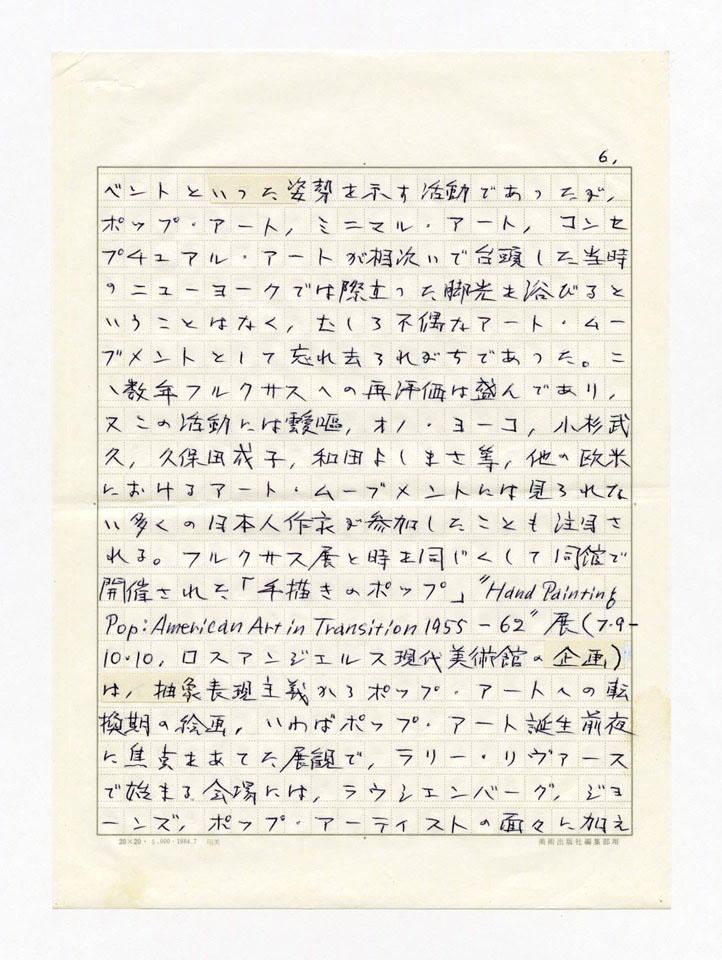 6,
ベントといった姿勢を示す活動であったが,
ポップ・アート, ミニマル・アート, コンセ
プチュアル・アートが相次いで台頭した当時
のニューヨークでは際立った脚光を浴びると
いうことはなく, むしろ不偶なアート・ムー
ブメントとして忘れ去られがちであった。こ
ヽ数年フルクサスへの再評価は盛んであり,
又この活動には靉嘔, オノ・ヨーコ, 小杉武
久, 久保田成子, 和田よしまさ等, 他の欧米
におけるアート・ムーブメントには見られな
い多くの日本人作家が参加したことも注目さ
れる。フルクサス展と時を同じくして同館で
開催された「手描きのポップ」"Hand Painting
Pop: American Art in Transition 1955 – 62"展(7.9–
10.10, ロスアンジェルス現代美術館の企画)
は, 抽象表現主義からポップ・アートへの転
換期の絵画, いわばポップ・アート誕生前夜
に焦点をあてた展観で, ラリー・リヴァース
で始まる会場には, ラウシェンバーグ, ジョ
ーンズ, ポップ・アーティストの面々に加え
20×20・5,000・1984.7 美術出版社編集部用